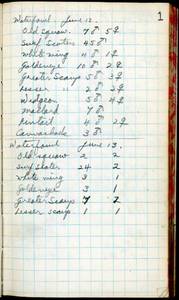 1
Waterfowl. June 12.
Old Squaw. 7♂ 5♀
Surf Scoter 45♂
White wing 11♂ 1♀
Goldeneye 10♂ 2♀
Greater Scaup 3♂ 3♀
Lesser " 2♂ 2♀
Widgeon 5♂ 4♀
Mallard 7♂
Pintail 4♂ 2♀
Canvasback 3♂
Waterfowl June 13.
Old squaw 2 2
Surf Scoter 24 2
White wing 3 1
Goldeneye 3 1
Greater Scaup 7 2
Lesser scaup 1 1